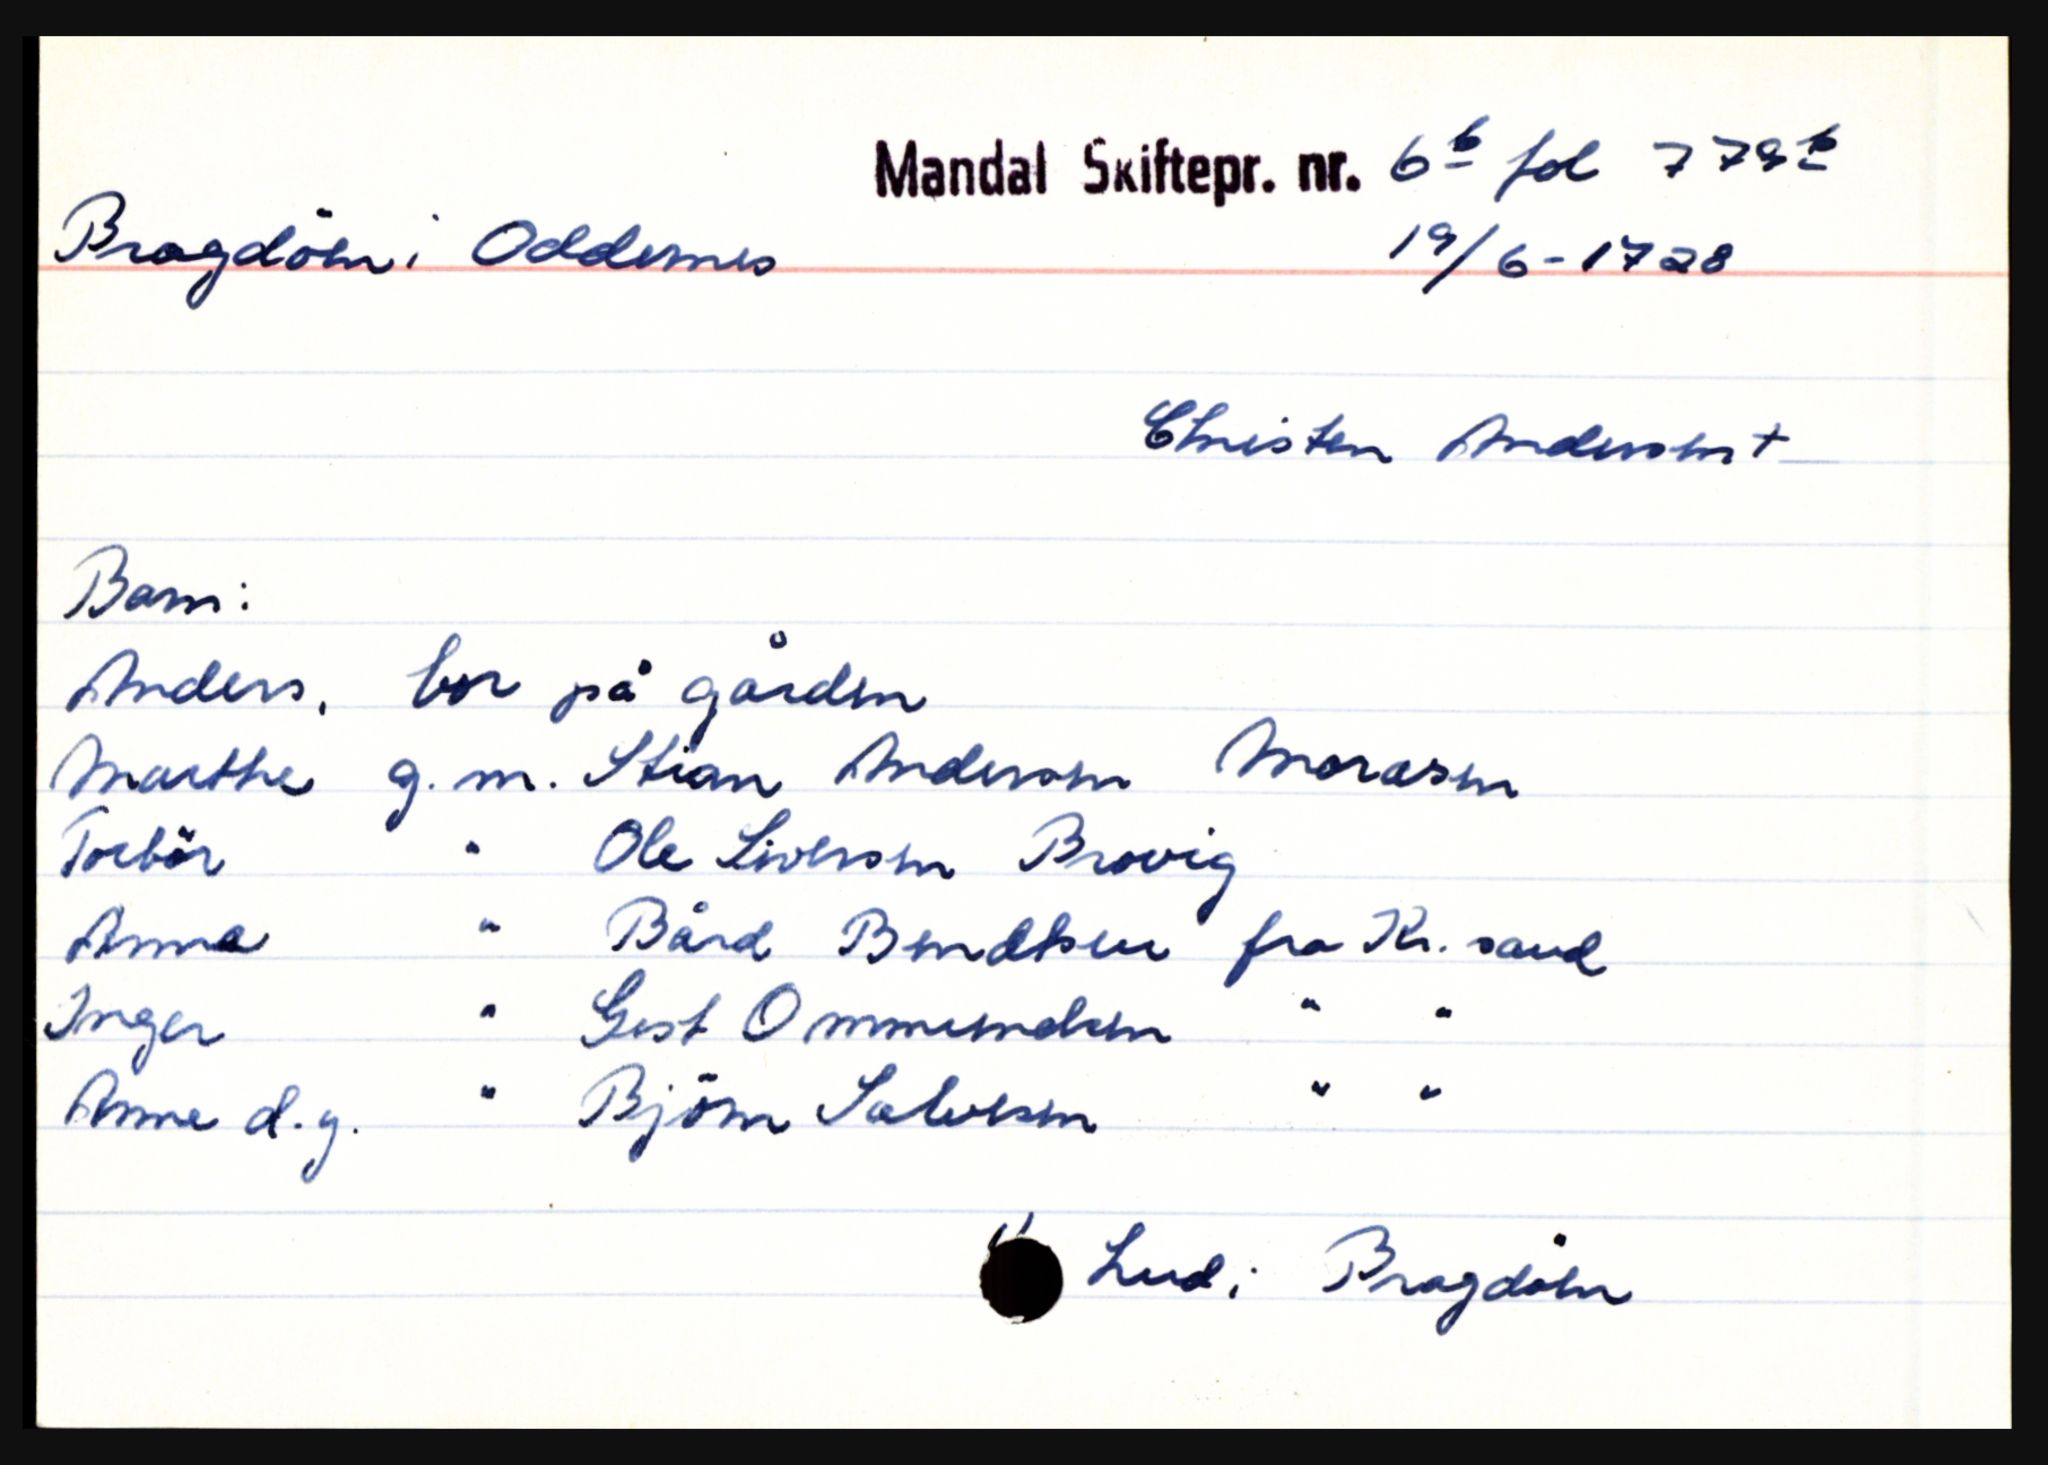 Mandal Skiftepr. nr. 6b fol 779b
Bragdöen i Oddernes 19/6-1728
Christen Andersen +
Barn:
Anders, bor på gården
Marthe g. m. Stian Andersen Moræsen
Torbör " Ole Siversen Brovig
Anna " Bård Bendtsen fra Kr. sand
Inger " Gest Ommundsen " "
Anne d.y. " Björn Salvesen " "
i Bragdöen